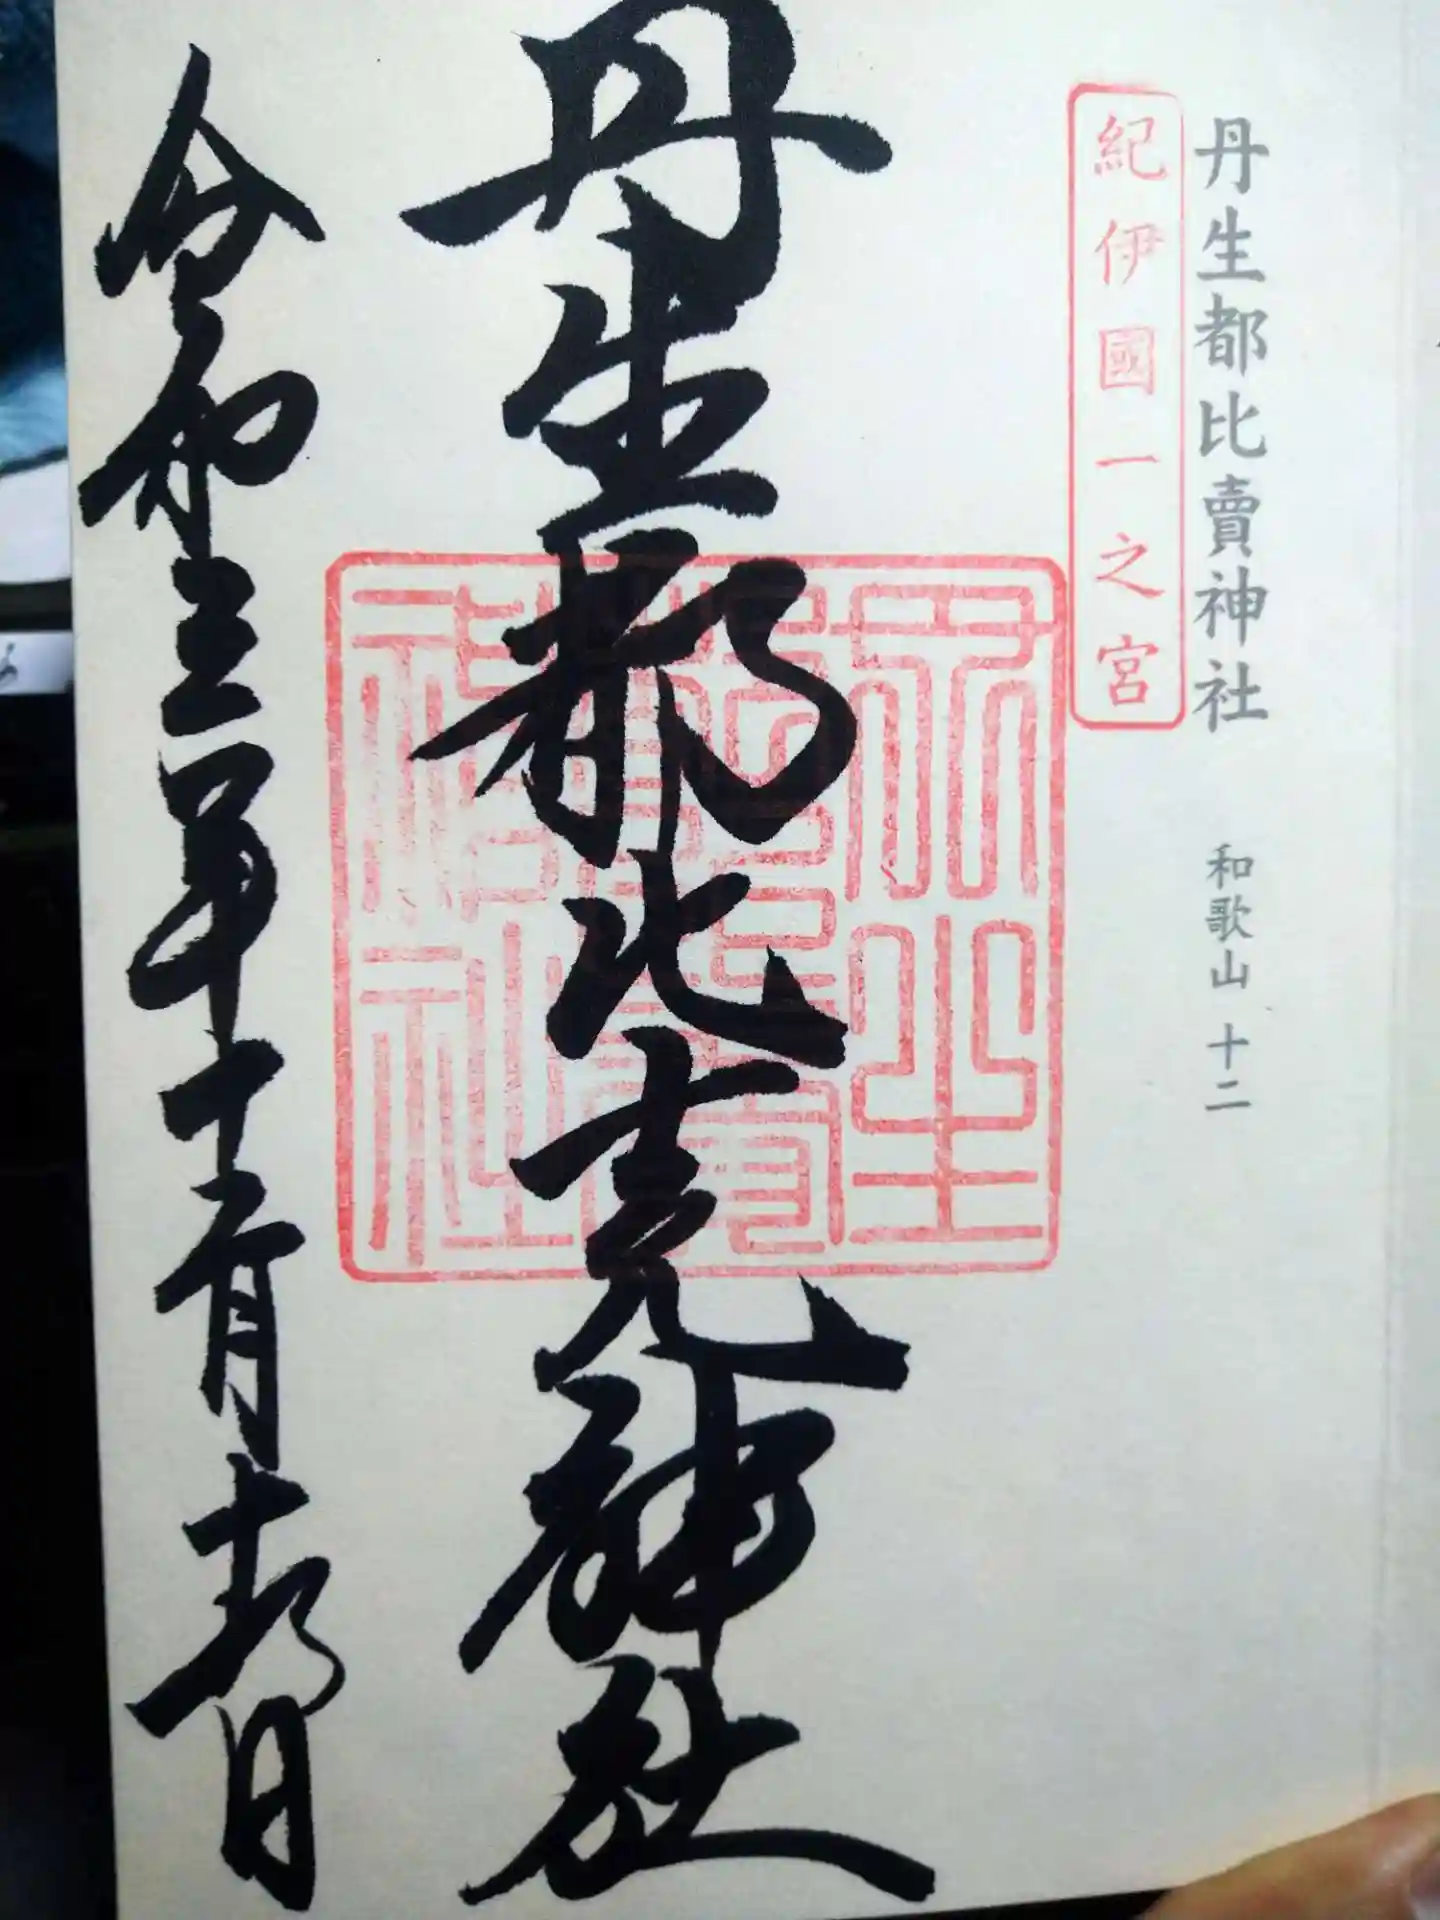 丹生都比賣神社 和歌山 十二
紀伊國一之宮
丹生都比売神社
丹生都比賣神社
令和三年十一月十五日